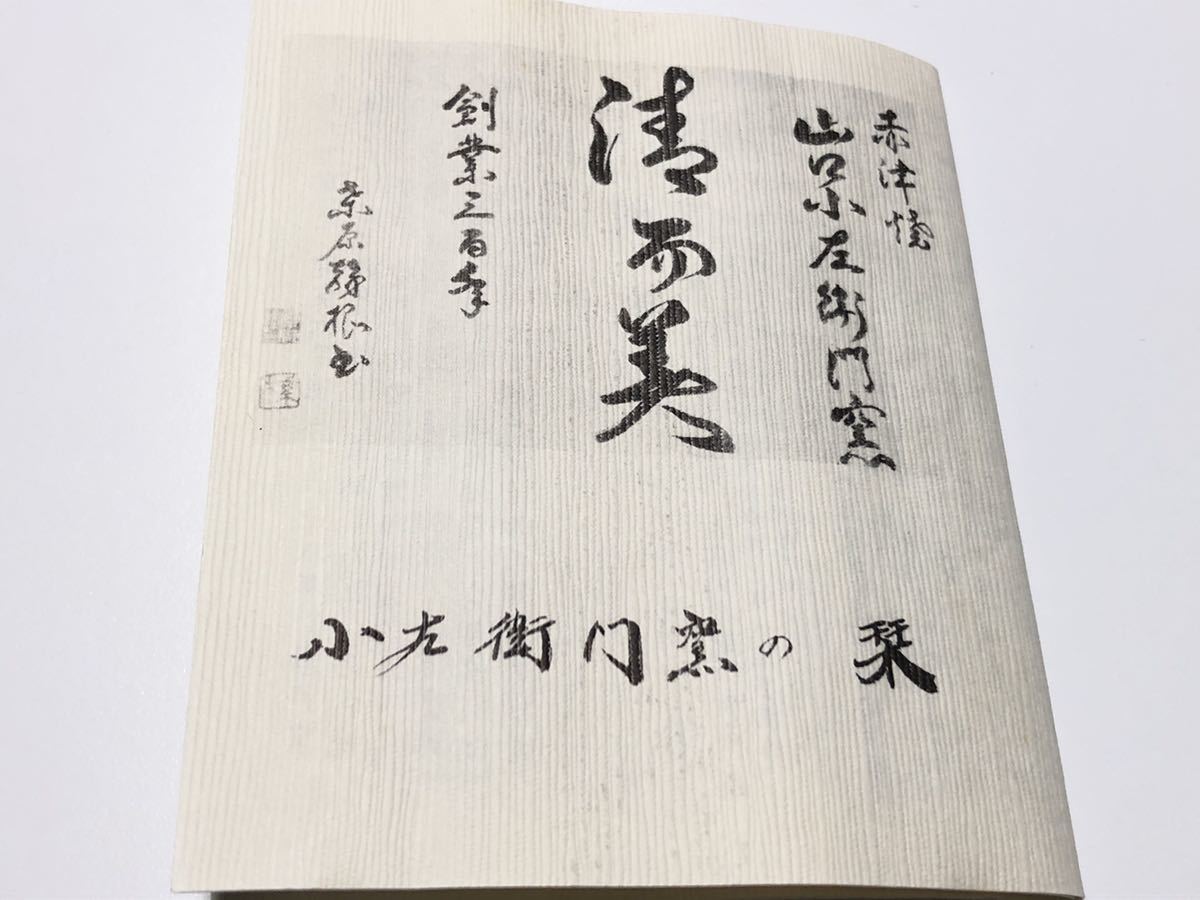 赤津焼
山口小左衛門窯
清而美
創業三百年
桑原幹根書
小左衛門窯の栞